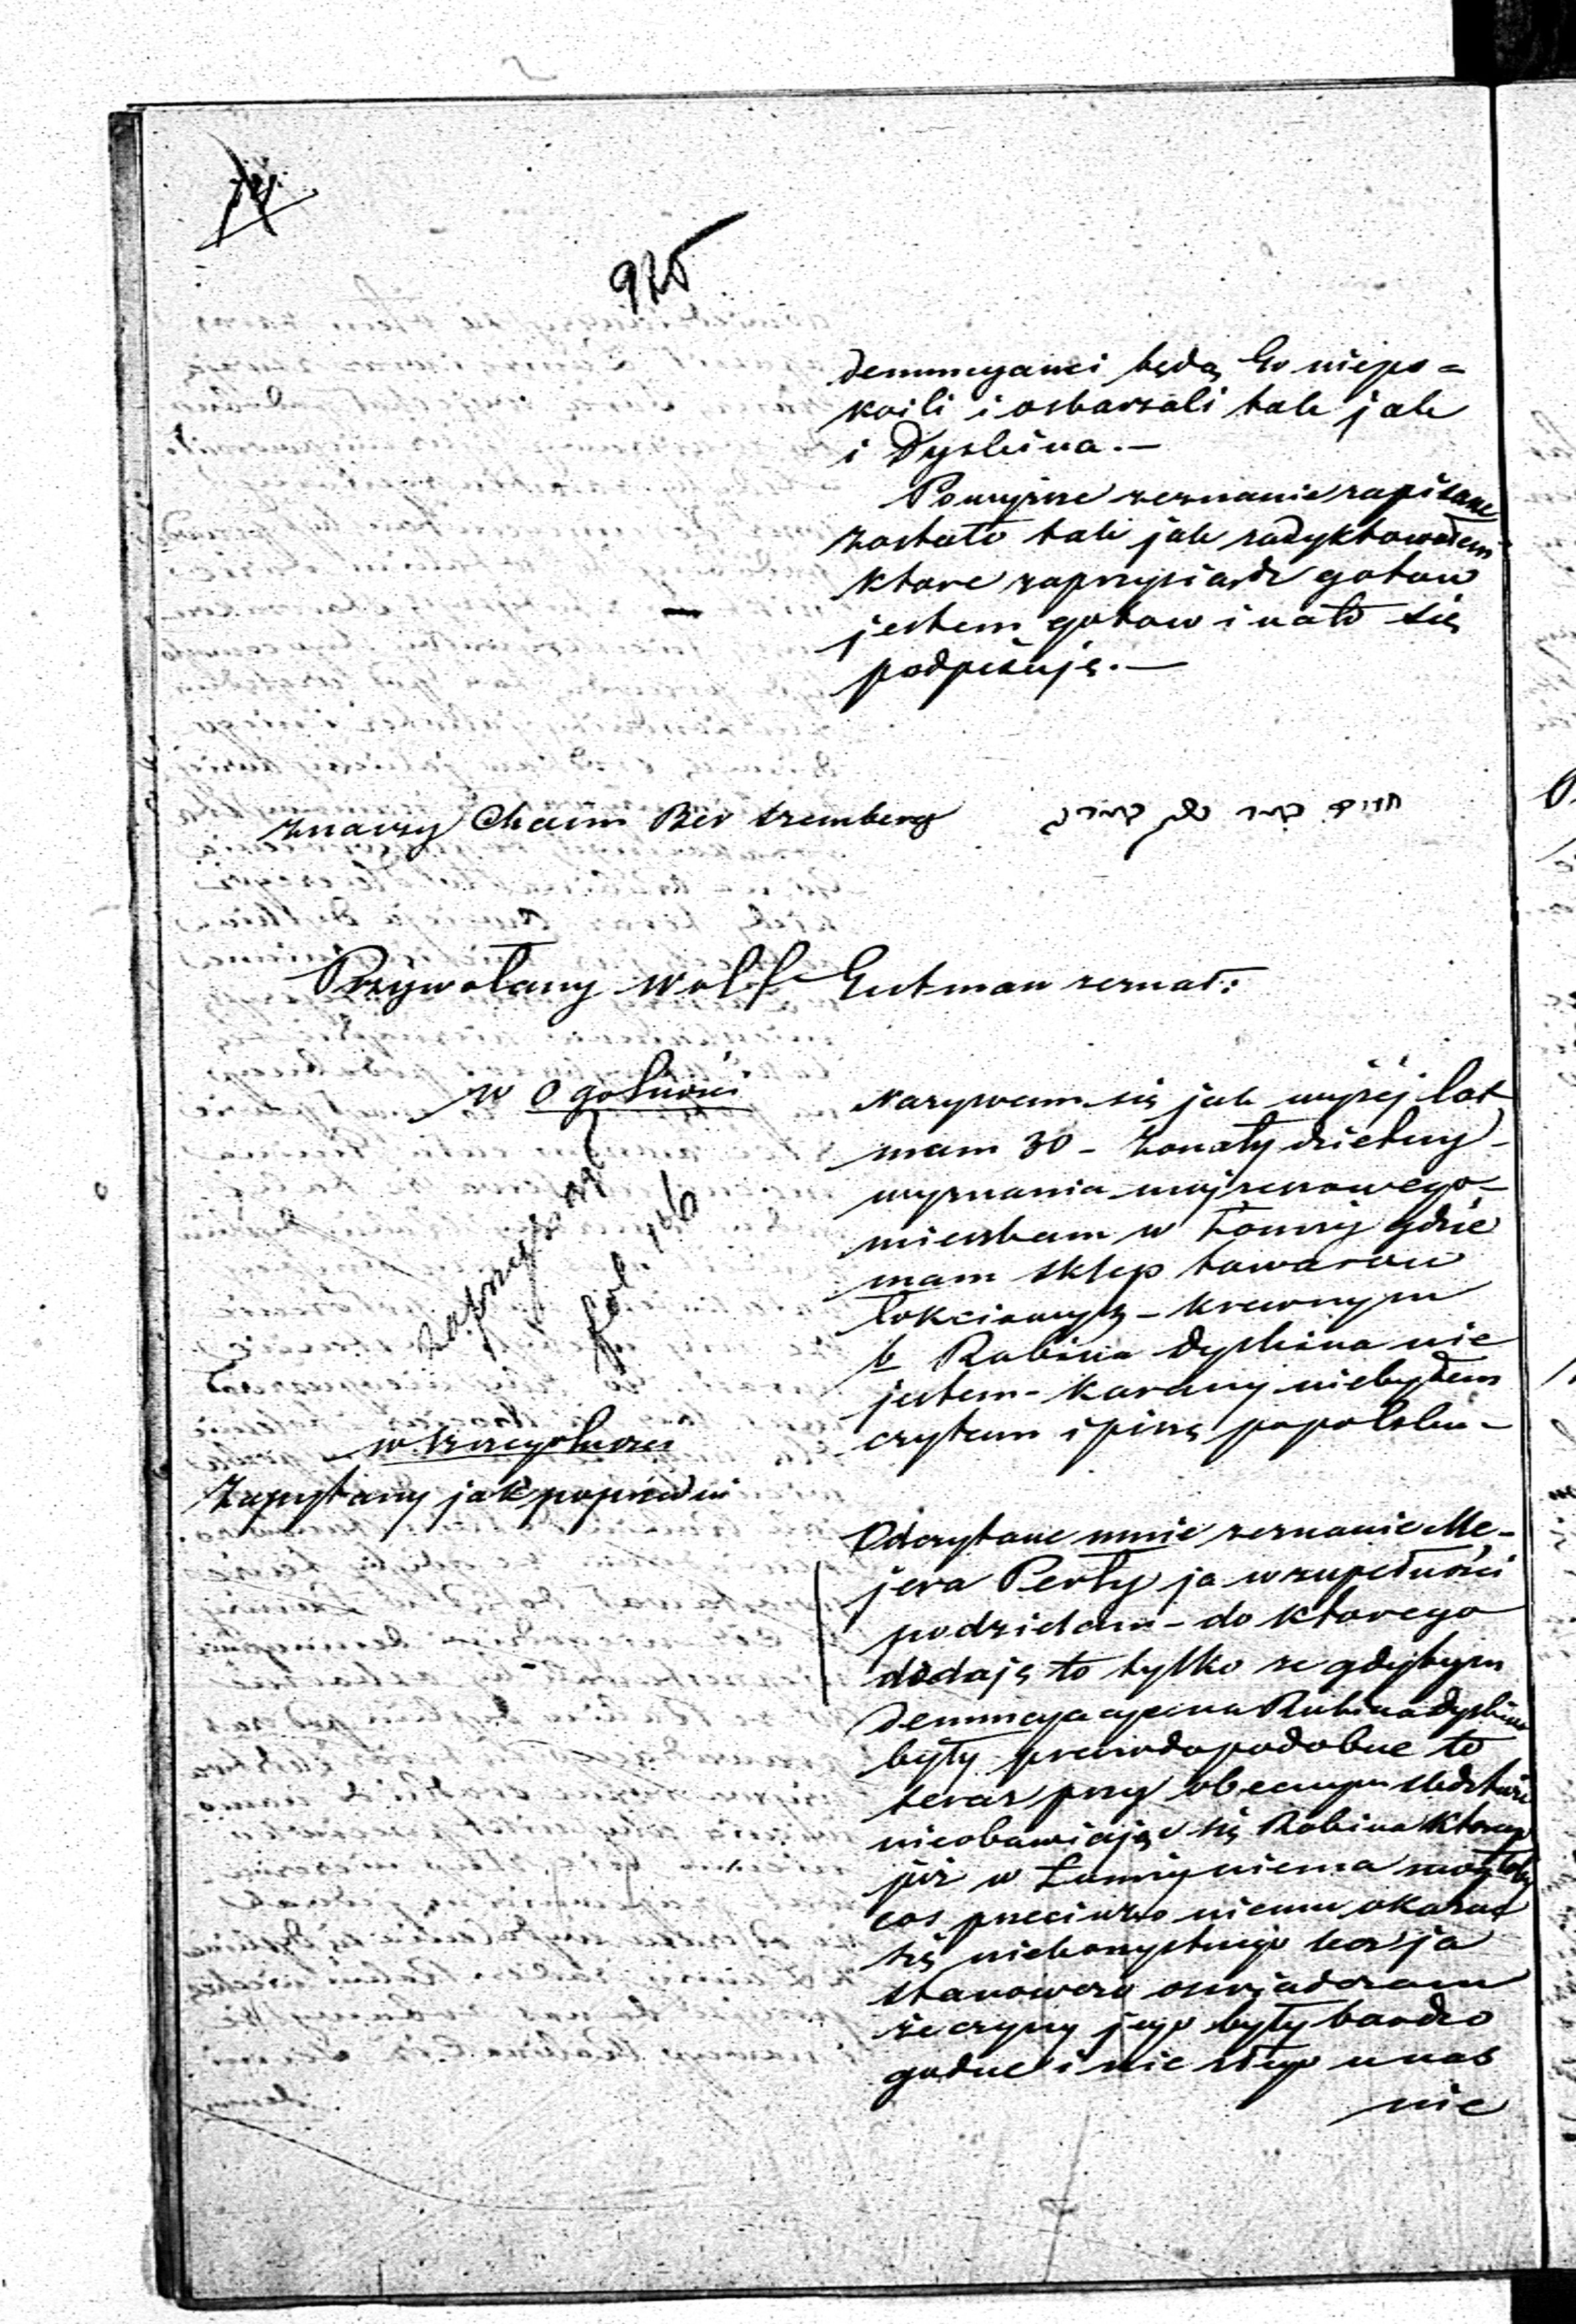 925
denuncyanci będą Go niepo=
koili i oskarzali tak jak
i Dyskina.—
Powyzsze zeznanie zapisane
zostało tak jak zadyktowałem
ktore zaprzysiądz gotow
jestem gotow i nato się
podpisuję.—
znaczy Chaim Ber Szemberg
חיים בער
Przywołany Wolf Gutman zeznał:
w Ogolności
zaprzysiągł
fol. 106
Nazywam się jak wyżej lat
mam 30 - żonaty dzietny -
wyznania mojżeszowego -
mieszkam w Łomży gdzie
mam sklep towarow
łokciowych - krewnym
b Rabina Dyskina nie
jestem - karany niebyłem
czytam i piszę popolsku -
w szczegolności
Zapytany jak poprzedni
Odczytane mnie zeznanie Me-
jera Perły ja wzupełności
podzielam - do ktorego
dodaję to tylko ze gdyby
denuncyacye na Rabina Dyskina
były prawdopodobne to
teraz przy obecnym śledztwie
nieobawiając się Rabina ktorego
już w Łomży niema mogłoby
cos przeciwko niemu okazać
się niekorzystnego lecz ja
stanowczo oswiadczam
że czyny jego były bardzo
godne i nic złego u nas
nie